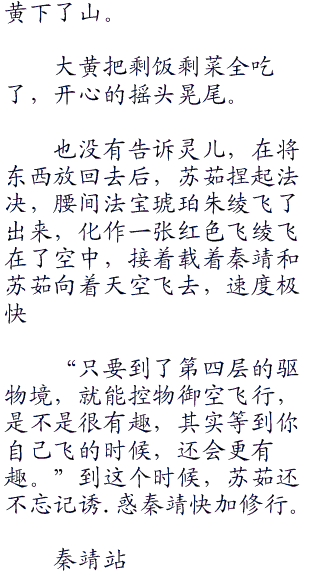 黄下了山。
大黄把剩饭剩菜全吃
了，开心的摇头晃尾。
也没有告诉灵儿，在将
东西放回去后，苏茹捏起法
决，腰间法宝琥珀朱绫飞了
出来，化作一张红色飞绫飞
在了空中，接着载着秦靖和
苏茹向着天空飞去，速度极
快
“只要到了第四层的驱
物境，就能控物御空飞行，
是不是很有趣，其实等到你
自己飞的时候，还会更有
趣。”到这个时候，苏茹还
不忘记诱.惑秦靖快加修行。
秦靖站